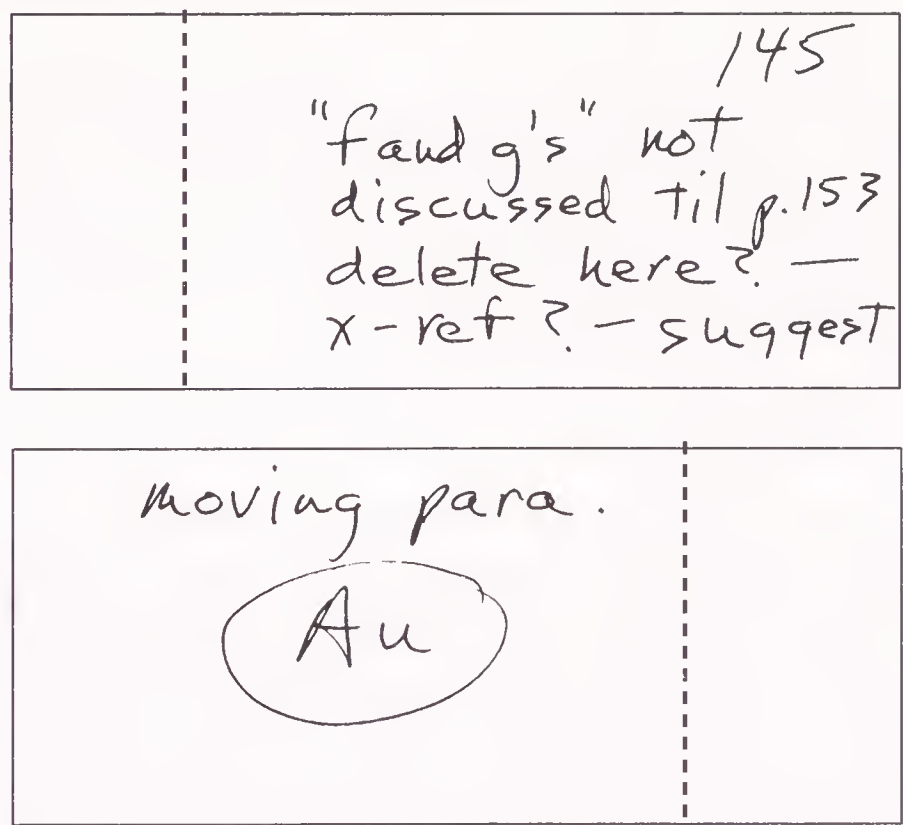 145
"f and g's" not
discussed til p.153
delete here? —
x-ref? — suggest
moving para.
Au